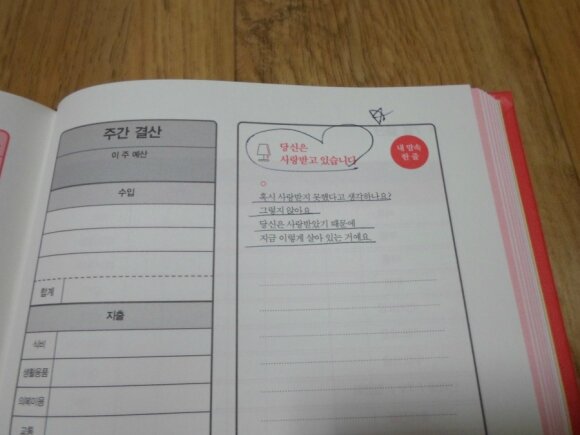 주간 결산
이 주 예산
수입
합계
지출
식비
생활용품
의복미용
교통
당신은
사랑받고 있습니다
내 맘속
한 줄
혹시 사랑받지 못했다고 생각하나요?
그렇지 않아요.
당신은 사랑받았기 때문에
지금 이렇게 살아 있는 거예요.